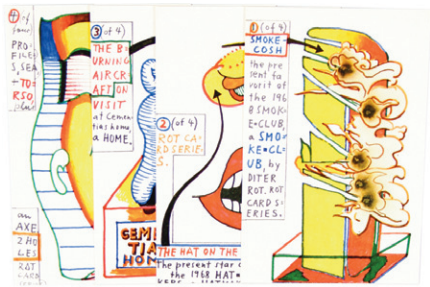 4 of
four
PRO-
FILE
S, SEA
+TO-
RSO
plus
an
AXE
2 HO
LES
ROT
CARD
3 (of 4)
THE BU
URNING
AIRCR
AFT ON
VISIT
at Cemen
tias home
a HOME.
GEMEN
TIA
HOM
2 (of 4)
ROT CA-
RD SERIE-
S.
THE HAT ON THE
The present star o
the 1968 HAT•
1 (of 4)
SMOKE-
COSH
the pre
sent fa
vorit of
the 196
8 SMOK-
E•CLUB,
a SMO-
KE•CL-
UB, by
DITER
ROT. ROT
CARD S-
ERIES.